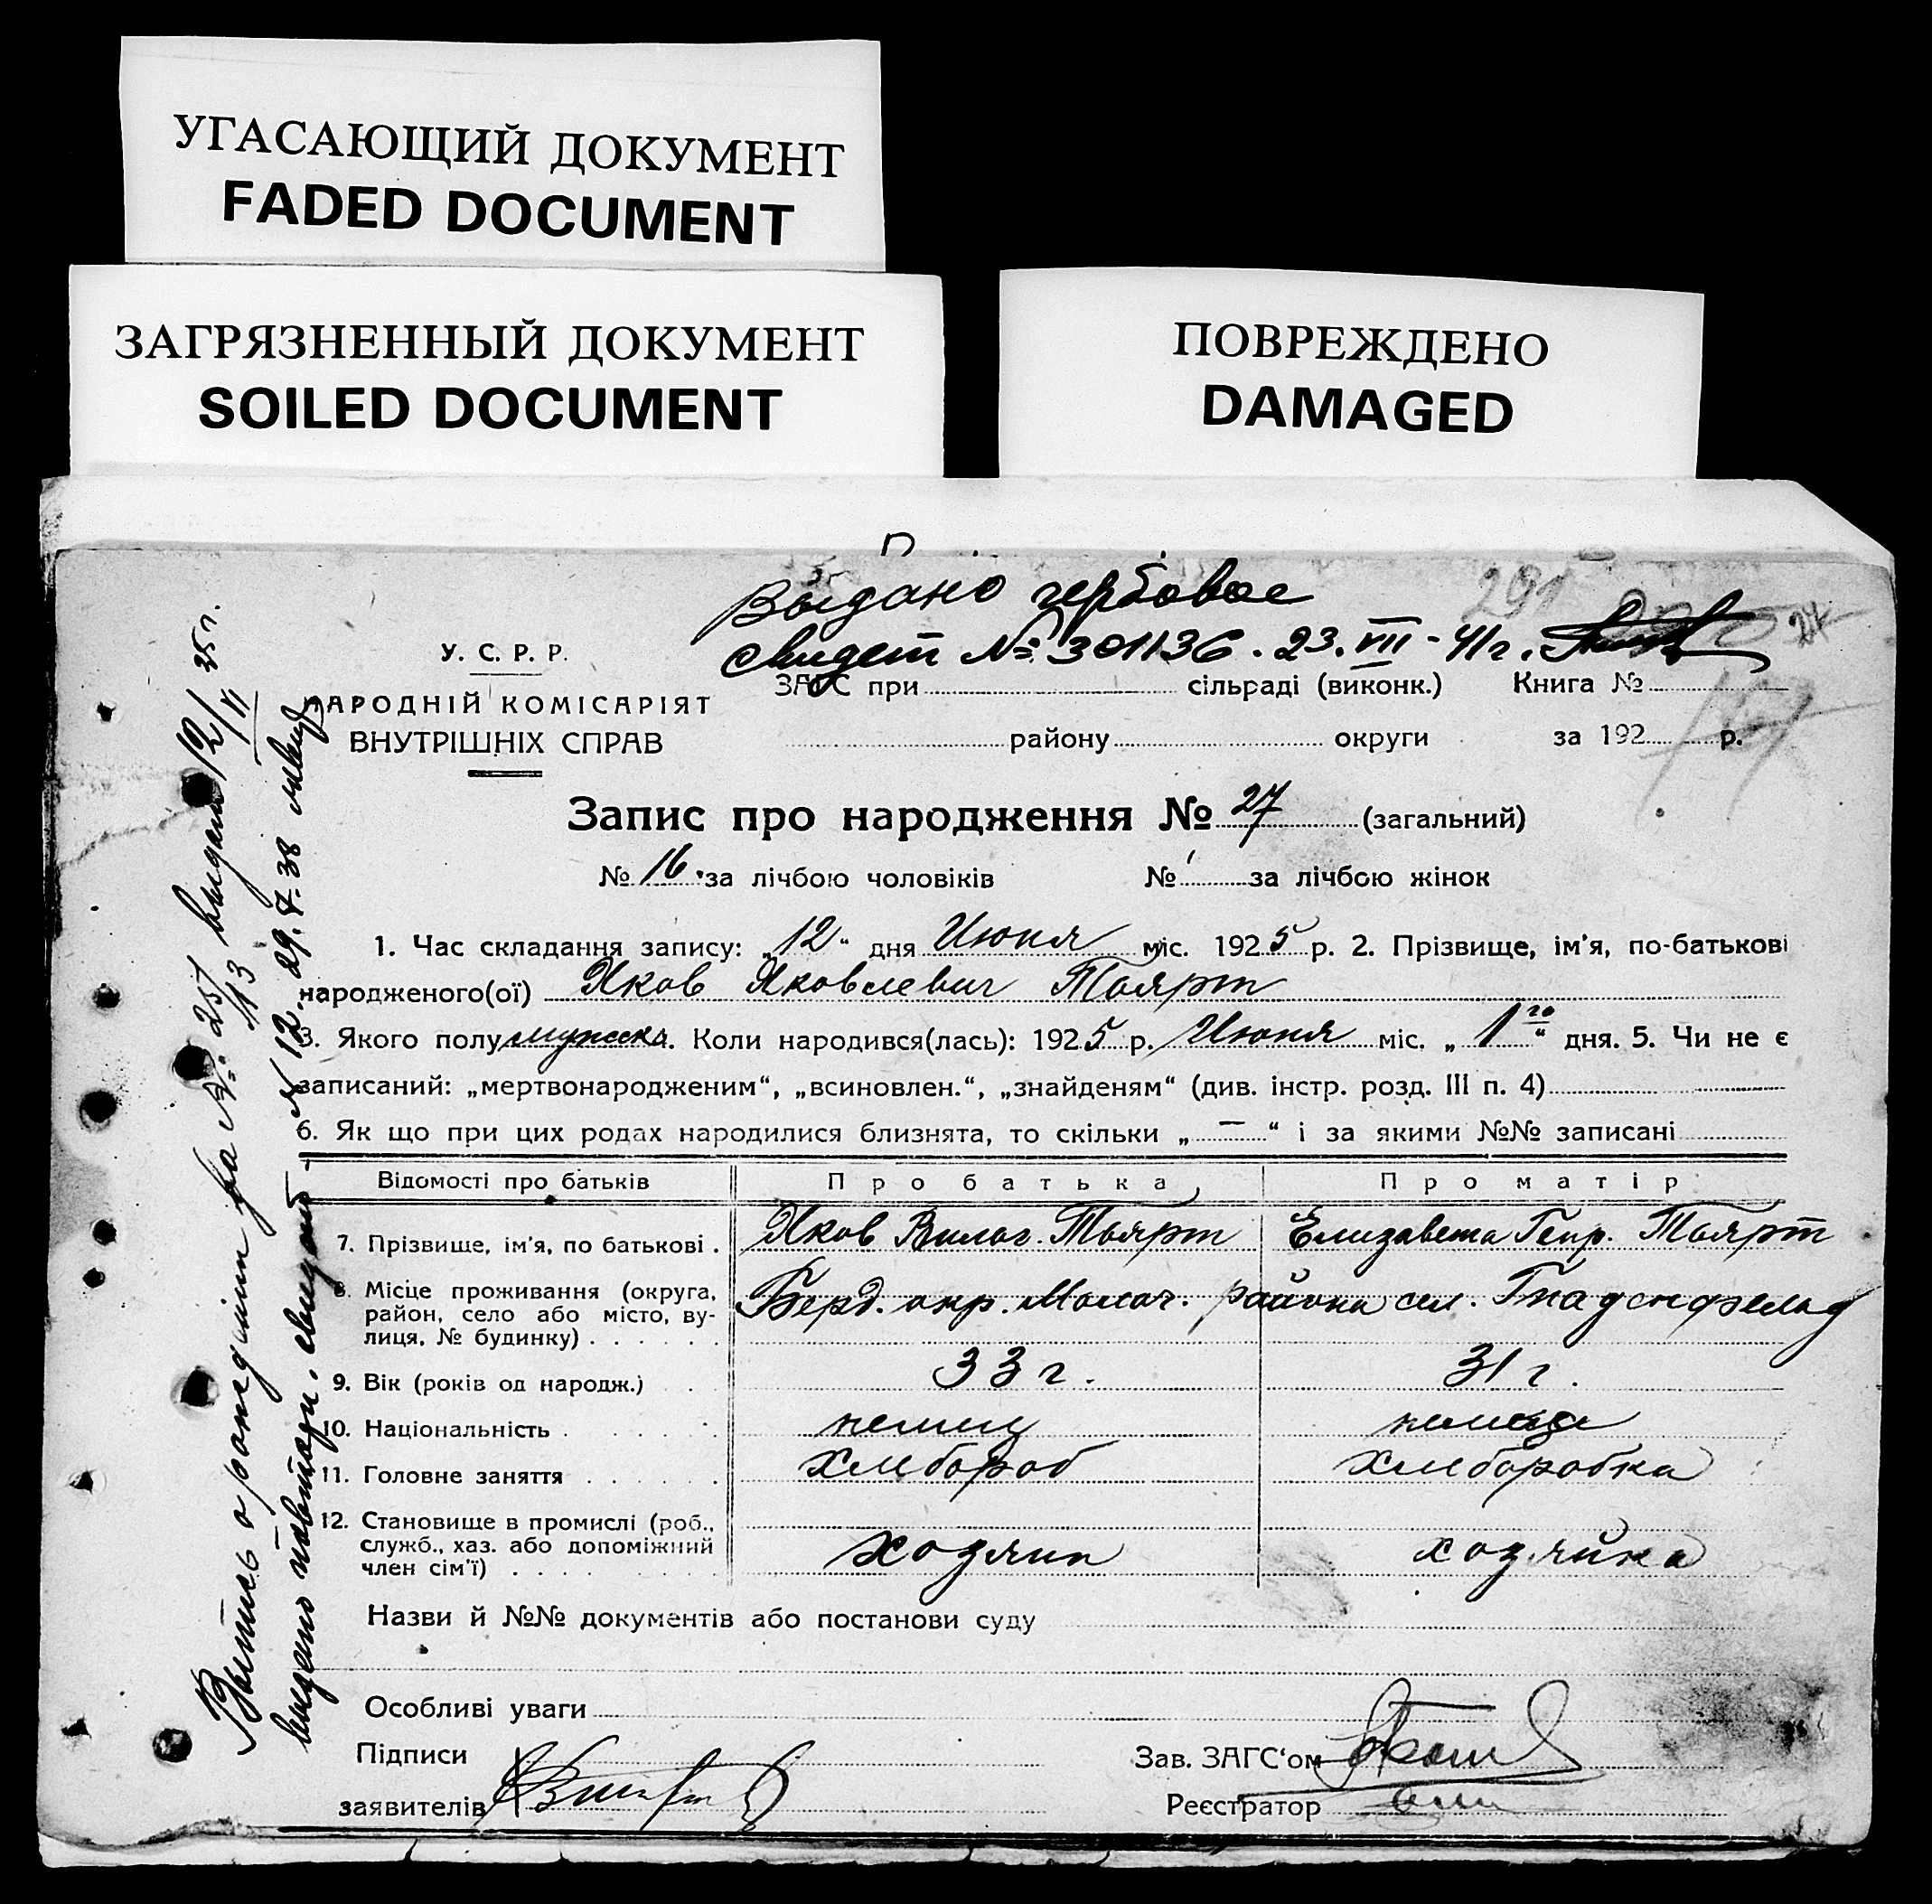 УГАСАЮЩИЙ ДОКУМЕНТ
FADED DOCUMENT
ЗАГРЯЗНЕННЫЙ ДОКУМЕНТ
SOILED DOCUMENT
ПОВРЕЖДЕНО
DAMAGED
Выдано гербовое
свидет № 301136. 23.VII-41г.
291
24
У. С. Р. Р.
НАРОДНІЙ КОМІСАРІЯТ
ВНУТРІШНІХ СПРАВ
ЗАГС при сільраді (виконк.) Книга №
району округи за 192 р.
Запис про народження № 27 (загальний)
№ 16 за лічбою чоловіків № за лічбою жінок
1. Час складання запису: „12" дня Июня міс. 1925 р. 2. Прізвище, ім'я, по-батькові
народженого(ої) Яков Яковлевич Тоярт
3. Якого полу мужска. Коли народився(лась): 1925 р. Июня міс. „1го" дня. 5. Чи не є
записаний: „мертвонародженим", „всиновлен.", „знайденям" (див. інстр. розд. III п. 4)
6. Як що при цих родах народилися близнята, то скільки „—" і за якими №№ записані
Відомості про батьків Про батька Про матір
7. Прізвище, ім'я, по батькові . Яков Вильг. Тоярт Елизавета Генр. Тоярт
8. Місце проживання (округа, район, село або місто, вулиця, № будинку) Берд. окр. Молоч. района сел. Гнаденфельд
9. Вік (років од народж.) 33 г. 31 г.
10. Національність немец немка
11. Головне заняття Хлебороб Хлеборобка
12. Становище в промислі (роб., служб., хаз. або допоміжний член сім'ї) хозяин хозяйка
Назви й №№ документів або постанови суду
Особливі уваги
Підписи
заявителів
Зав. ЗАГС'ом
Реєстратор
Выпись о рождении за № 257 выдана 12/VI 35 г.
выдано повторн. свидет. № 12. 29.7.38